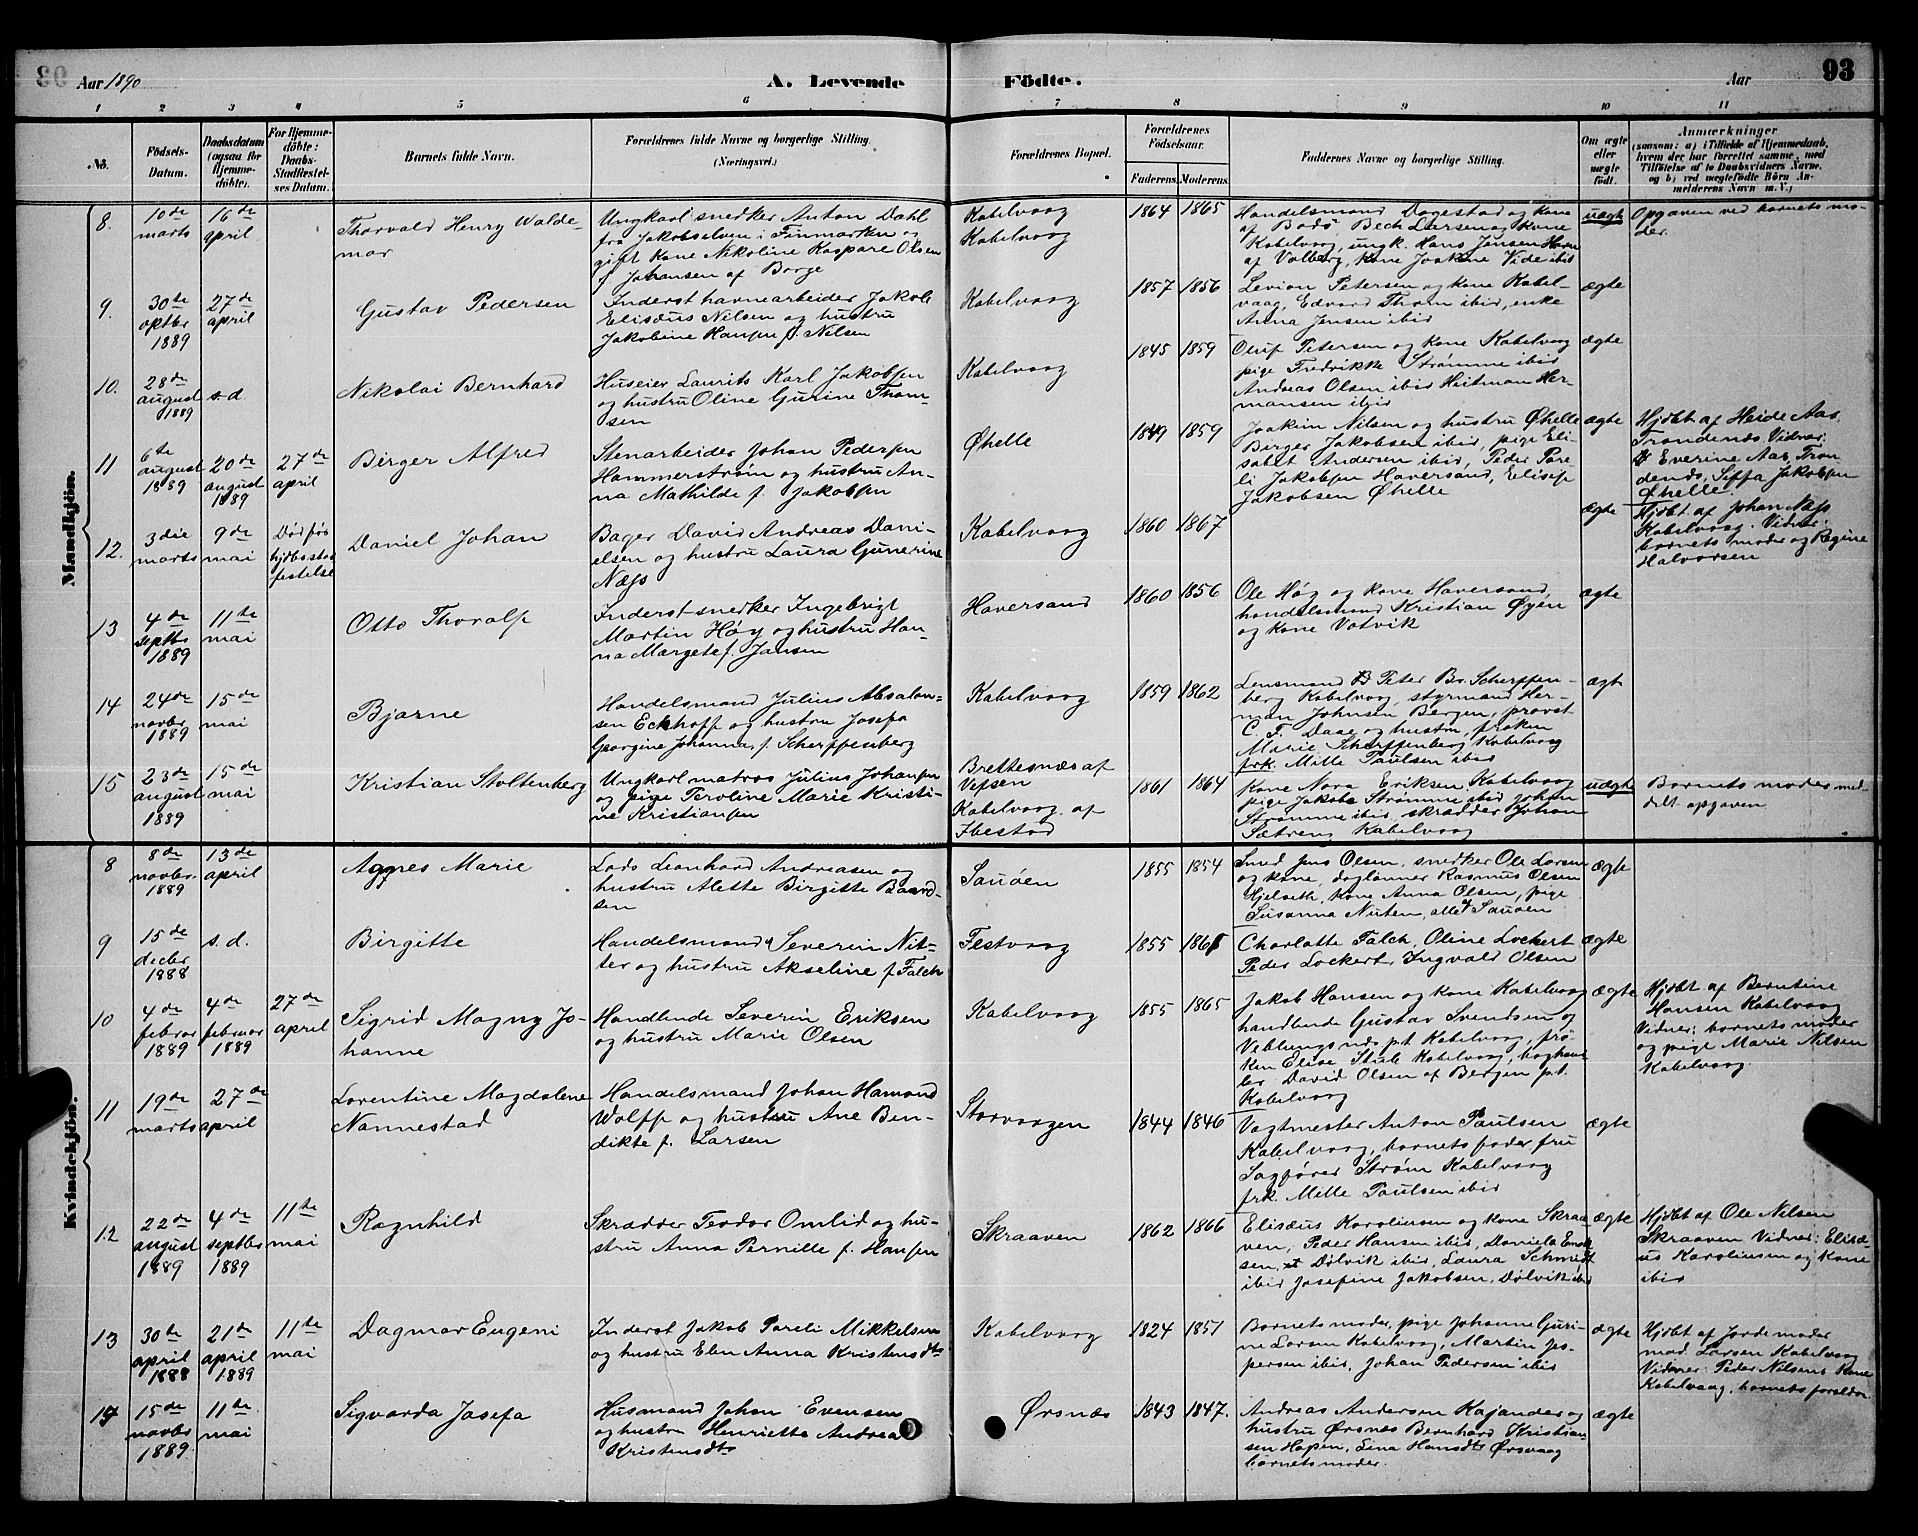 Aar 1890
A. Levende Födte.
Aar
93
1 2 3 4 5 6 7 8 9 10 11
Nö.
Födsels-
Datum.
Daabsdatum
(ogsaa for
Hjemme-
döbte).
For Hjemme-
döbte:
Daabs-
Stadfæstel-
ses Datum.
Barnets fulde Navn.
Forældrenes fulde Navne og borgerlige Stilling.
(Næringsvei.)
Forældrenes Bopæl.
Forældrenes
Födselsaar.
Faderens. Moderens.
Faddernes Navne og borgerlige Stilling.
Om ægte
eller
uægte
födt.
Anmærkninger
(saasom: a) i Tilfælde af Hjemmedaab,
hvem der har forrettet samme, med
Tilföielse af to Daabsvidners Navne,
og b) ved uægtefödte Börn An-
melderens Navn m. V.)
Mandkjön.
8.
10de
marts
16de
april
Thorvald Henry Walde-
mar
Ungkarl snedker Anton Dahl
fra Jakobselven i Finmarken og
gift kone Nikoline Kaspare Olsen
f. Johansen af Borge
Kabelvaag
Kabelvaag
1864 1865
Handelsmand Dagestad og kone
af Bodö Bech Larsen og kone
Kabelvaag, ungk. Hans Jensen Havn
af Valberg, kone Joakine Vide ibid
uægte
Opgaven ved barnets mo-
der.
9.
30te
oktbr
1889
27de
april
Gustav Pedersen
Inderst havnearbeider Jakob
Elisæus Nilsen og hustru
Jakobine Hansen f. Nilsen
Kabelvaag
1857 1856
Levion Petersen og kone Kabel-
vaag, Edvard Thom ibid, enke
Anna Jensen ibid
ægte
10.
28de
august
1889
s. d
Nikolai Bernhard
Huseier Laurits Karl Jakobsen
og hustru Oline Gurine Thom-
sen
Kabelvaag
1845 1859
Oluf Petersen og kone Kabelvaag
pige Fredrikke Strømme ibid
Andreas Olsen ibid Heitman Her-
mansen ibid
ægte
11
6te
august
1889
20de
august
1889
27de
april
Birger Alfred
Stenarbeider Johan Pedersen
Hammerstrøm og hustru An-
na Mathilde f. Jakobsen
Øhelle
1849 1859
Joakim Nilsen og hustru Øhelle
Birger Jakobsen ibid, pige Eli-
sabet Andersen ibid, Peder Pare-
li Jakobsen Haversand, Elisif
Jakobsen Øhelle
ægte
Hjdbt af Heide Aas,
Trondenæs Vidner:
Everine Aas, Tron
denæs, Siffa Jakobsen
Øhelle.
12.
3die
marts
9de
mai
Död før
hjdbs stad
festelse
Daniel Johan
Bager David Andreas Dani-
elsen og hustru Laura Gunerine
Næss
Kabelvaag
1860 1867
ægte
Hjdbt af Johan Næss
Kabelvaag. Vidner:
barnets moder og Regine
Halvorsen
13
4de
septbr
1889
11te
mai
Otto Thoralf
Inderst snedker Ingebrigt
Martin Høy og hustru Han-
na Margete f. Jansen
Haversand
1860 1856
Ole Høg og kone Haversand,
handelsmand Kristian Øyen
og kone Votvik
ægte
14
24de
novbr
1889
15de
mai
Bjarne
Handelsmand Julius Absalon-
sen Eckhoff og hustru Josefa
Georgine Johanna, f. Scherffenberg
Kabelvaag
1859 1862
Lensmand Peter Br. Scherffen-
berg Kabelvaag, styrmand Her-
man Johnsen Bergen, provst
C. F. Daae og hustru, frøken
Marie Scherffenberg Kabelvaag
frk. Mille Paulsen ibid
ægt
15
23de
august
1889
15de
mai
Kristian Stoltenberg
Ungkarl matros Julius Johansen
og pige Peroline Marie Kristi-
ne Kristiansen
Brettesnæs af
Vefsen
Kabelvaag af
Ibestad
1861 1864
Kone Nora Eriksen Kabelvaag
pige Jakoba Strømme ibid Johan
Strømme ibid, skrædder Johan
Sætreng Kabelvaag
uægte
Barnets moder med-
delt opgaven
Kvindekjön.
8
8de
novbr.
1889
13de
april
Agnes Marie
Lods Leonhard Andreasen og
hustru Mette Birgitte Baard-
sen
Sauöen
1855 1854
Smed Jens Olsen, snedker Ole Larsen
og kone, daglønner Rasmus Olsen
Hjelseth, kone Anna Olsen, pige
Susanna Nuten, alle Sauöen
ægte
9
15de
decbr
1888
s. d.
Birgitte
Handelsmand Severin Nit-
ter og hustru Akseline f. Falch
Festvaag
1855 1865
Charlotte Falch, Oline Lockert
Peder Lockert, Ingvald Olsen
ægte
10
4de
febror
1889
4de
februar
1889
27de
april
Sigrid Magny Jo-
hanne
Handlende Severin Eriksen
og hustru Marie Olsen
Kabelvaag
1855 1865
Jakob Hansen og kone Kabelvaag
handlende Gustav Svendsen og
Veblungsnæs p.t. Kabelvaag, frö-
ken Elise Stub Kabelvaag, boghand
ler David Olsen af Bergen p.t.
Kabelvaag
ægte
Hjdbt af Berntine
Hansen Kabelvaag
Vidner: barnets moder
og pige Marie Nilsen
Kabelvaag.
11
19de
marts
27de
april
Lorentine Magdalene
Nannestad
Handelsmand Johan Hamond
Wolff og hustru Ane Ben-
dikte f. Larsen
Storvaagen
1844 1846
Vagtmester Anton Paulsen
Kabelvaag, barnets fader fru
Sagfører Strøm Kabelvaag
frk. Mille Paulsen ibid
ægte
12
22de
august
1889
4de
septbr
1889
11te
mai
Ragnhild
Skrædder Teodor Omlid og hu-
stru Anna Pernille f. Hansen
Skraaven
1862 1866
Elisæus Karoliusen og kone Skraa-
ven, Peder Hansen ibid, Daniela
sen, Dølvik ibid, Laura Schmidt
ibid Josefine Jakobsen, Dølvik ibid
ægte
Hjdbt af Ole Nilsen
Skraaven Vidner: Elisæ-
us Karoliusen og kone
ibid
13
30te
april
1888
21de
april
1889
11te
mai
Dagmar Eugeni
Inderst Jakob Pareli Mikkelsen
og hustru Elen Anna Kristensdtr
Kabelvaag
1824 1851
Barnets moder, pige Johanne Guri-
ne Larsen Kabelvaag, Martin Jes-
persen ibid, Johan Pedersen ibid
ægte
Hjdbt af Jordemoder
mad. Larsen Kabelvaag
Vidner: Peder Nilsens kone
Kabelvaag, barnets forældre
14
15de
novbr
1889
11te
mai
Sigvarda Josefa
Husmand Johan Evensen
og hustru Henriette Andrea
Kristensdtr
Ørsnæs
1843 1847.
Andreas Andersen Kajander og
hustru Ørsnæs Bernhard Kristian-
sen Hopen, Lina Hansdtr Ørsvaag
barnets moder.
ægte